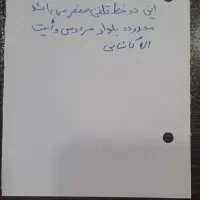 این دو خط تلفن صفر می باشد
محدوده بلوار فردوسی و آیت
اله کاشانی